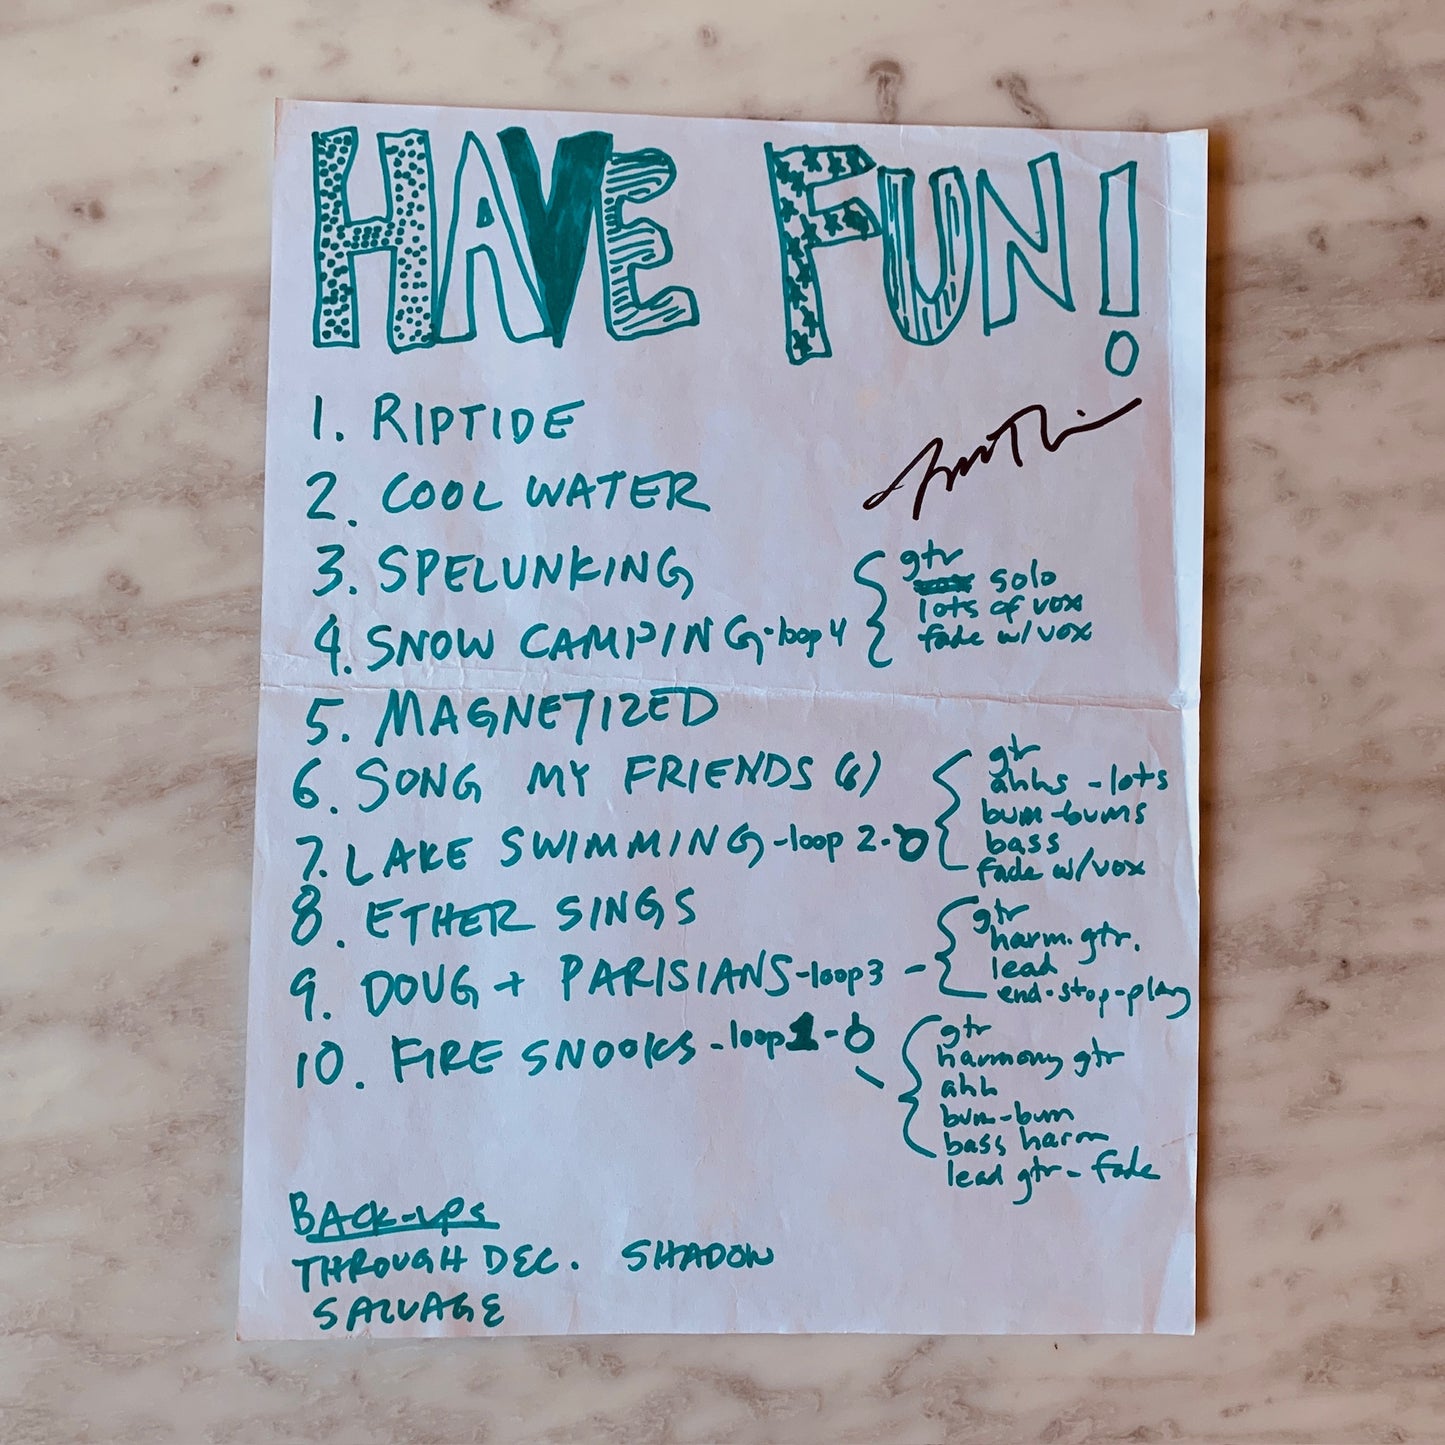 HAVE FUN!
1. RIPTIDE
2. COOL WATER
3. SPELUNKING
4. SNOW CAMPING - loop 4
gtr
solo
lots of vox
fade w/ vox
5. MAGNETIZED
6. SONG MY FRIENDS (6)
7. LAKE SWIMMING - loop 2 -
gtr
ahhs - lots
bum-bums
bass
fade w/ vox
8. ETHER SINGS
9. DOUG + PARISIANS - loop 3 -
gtr
harm. gtr.
lead
end-stop-play
10. FIRE SNOOKS - loop 1 -
gtr
harmony gtr
ahh
bum-bum
bass harm
lead gtr - fade
BACK-UPS
THROUGH DEC. SHADOW
SALVAGE